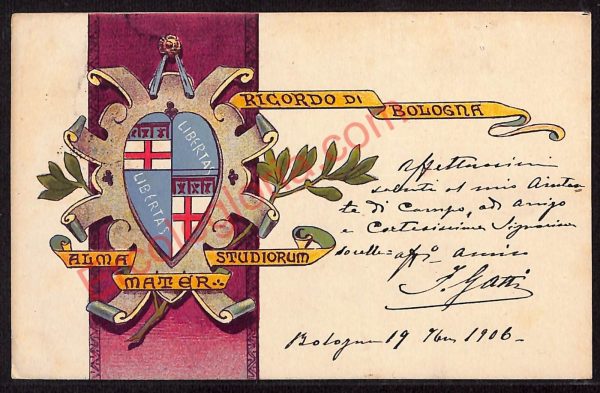 RICORDO DI
BOLOGNA
LIBERTAS
LIBERTAS
ALMA
MATER
STUDIORUM
Affettuosissimi
saluti al mio Aiutan
te di Campo, ad Arrigo
e Cortesissime Signorine
sorelle aff° amico
Bologna 19 1906